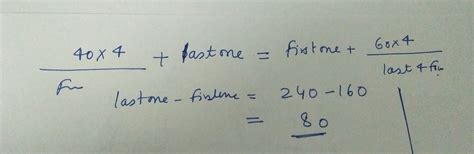 40×4 + last one = first one + 60×4
last 4
last one - first one = 240 - 160
= 80